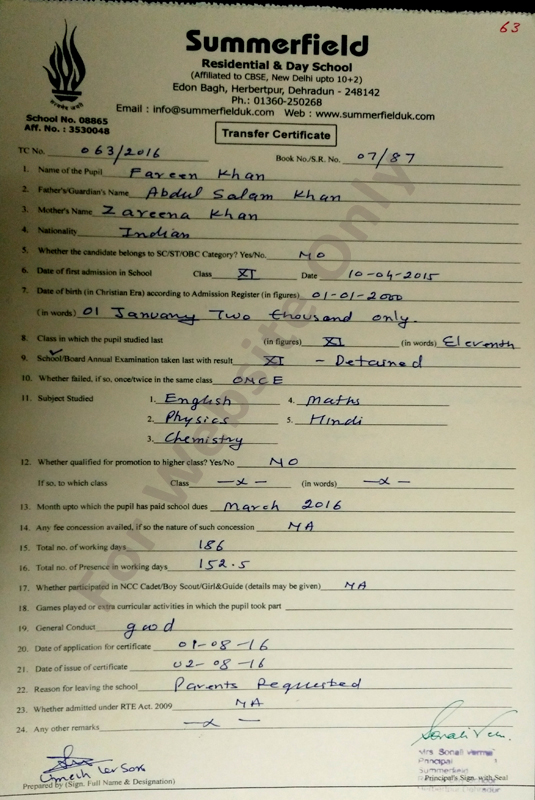 63
Summerfield
Residential & Day School
(Affiliated to CBSE, New Delhi upto 10+2)
Edon Bagh, Herbertpur, Dehradun - 248142
Ph.: 01360-250268
Email : info@summerfielduk.com Web : www.summerfielduk.com
School No. 08865
Aff. No. : 3530048
Transfer Certificate
TC No. 063/2016 Book No./S.R. No. 07/87
1. Name of the Pupil Fareen Khan
2. Father's/Guardian's Name Abdul Salam Khan
3. Mother's Name Zareena Khan
4. Nationality Indian
5. Whether the candidate belongs to SC/ST/OBC Category? Yes/No. NO
6. Date of first admission in School Class XI Date 10-04-2015
7. Date of birth (in Christian Era) according to Admission Register (in figures) 01-01-2000
(in words) 01 January Two thousand only.
8. Class in which the pupil studied last (in figures) XI (in words) Eleventh
9. School/Board Annual Examination taken last with result XI - Detained
10. Whether failed, if so, once/twice in the same class ONCE
11. Subject Studied 1. English 4. Maths
2. Physics 5. Hindi
3. Chemistry
12. Whether qualified for promotion to higher class? Yes/No NO
If so, to which class Class -x- (in words) -x-
13. Month upto which the pupil has paid school dues March 2016
14. Any fee concession availed, if so the nature of such concession NA
15. Total no. of working days 186
16. Total no. of Presence in working days 152.5
17. Whether participated in NCC Cadet/Boy Scout/Girl&Guide (details may be given) NA
18. Games played or extra curricular activities in which the pupil took part
19. General Conduct good
20. Date of application for certificate 01-08-16
21. Date of issue of certificate 02-08-16
22. Reason for leaving the school Parents Requested
23. Whether admitted under RTE Act. 2009 NA
24. Any other remarks -x-
Sonali
Mrs. Sonali Verma
Principal
Summerfield
Prepared by (Sign. Full Name & Designation) Principal's Sign. with Seal
For Website Only